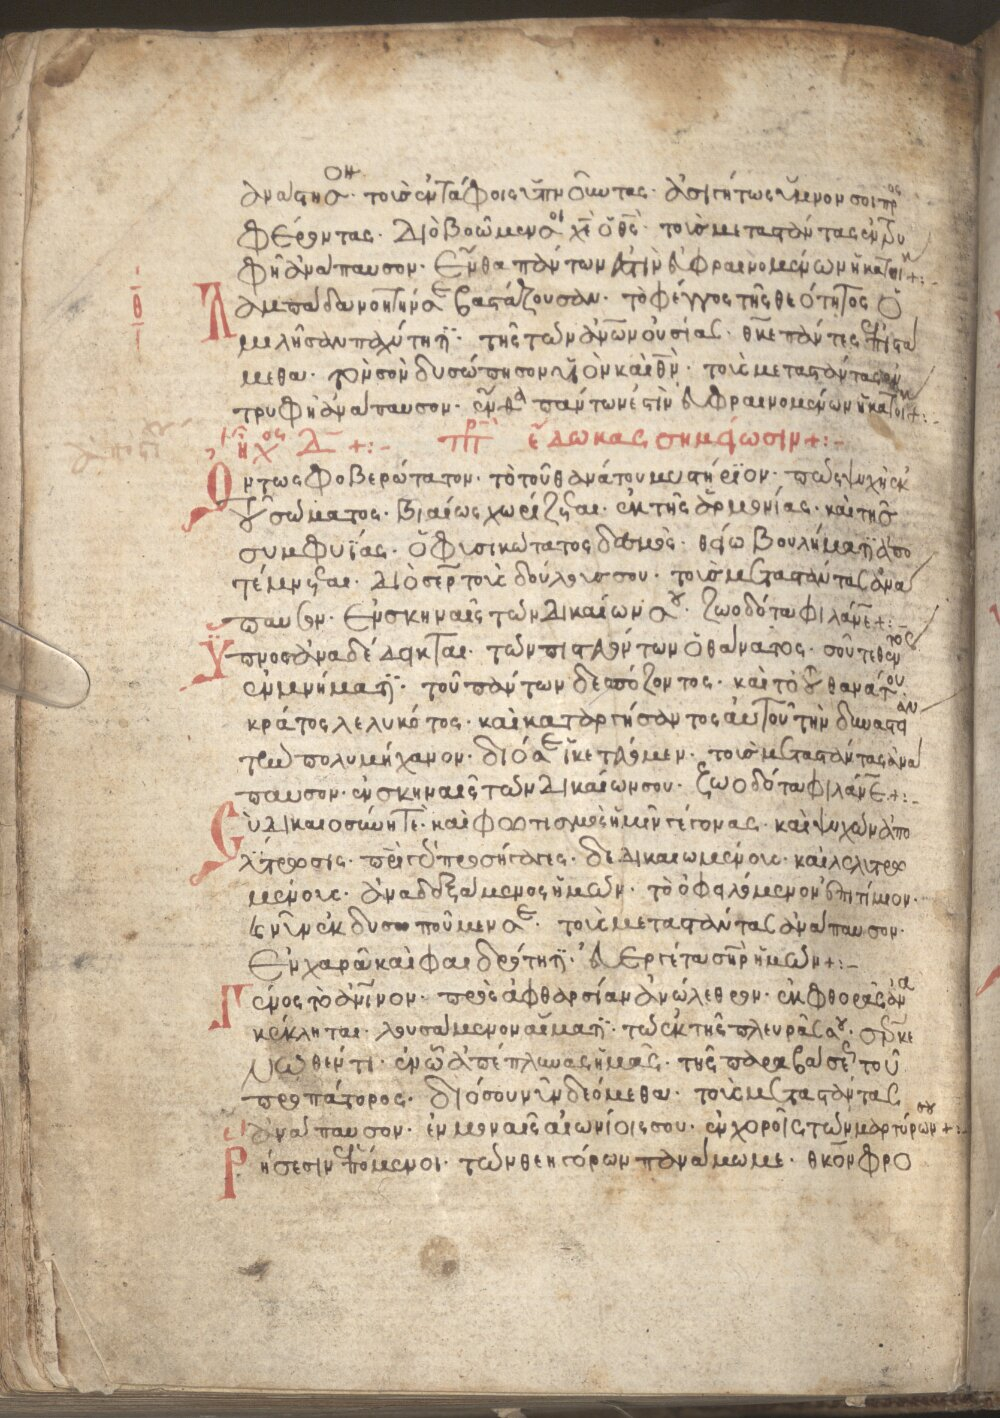 ἀναστησ τοῖσ ἐν τάφοις ὑπνοῦντας· ἀσιγήτως ὕμνον σοι πρ
φέροντας· Διὸ βοῶμεν σοι χε ὁ θς· τοῖσ μεταστάντας ἐν τρυ
φῇ ἀνάπαυσον· Ἔνθα πάντων ἐστὶν εὐφραινομένων ἡ κατοι +:
Λ αμπάδα νοητήν σε βαστάζουσαν· τὸ φέγγος τῆς θεότητος
μελῆσαν παχύτητι· τῆς τῶν ἀνων οὐσίας· θκε πάντες ἐπιστά
μεθα· τὸν σὸν δυσώπησον υἱὸν καὶ θν· τοῖς μεταστάντας ἐν
τρυφῇ ἀνάπαυσον· ἔνθα πάντων ἐστὶν εὐφραινομένων ἡ κατοι +:-
ἦχος Δ +:- πρ ἔδωκας σημείωσιν +:-
Ὄντως φοβερώτατον· τὸ τοῦ θανάτου μυστήριον· πῶς ψυχὴ ἐκ
τοῦ σώματος· βιαίως χωρίζεται· ἐκ τῆς ἁρμονίας· καὶ τῆσ
συμφυΐας· ὁ φισικώτατος δεσμὸς· θείω βουλήματι ἀπο
τέμνεται· Διό σε περ τοῖς δούλοισ σου· τοῖσ μεταστάντας ἀνά
παυσον· Ἐν σκηναῖς τῶν Δικαίων σου· ζωοδότα φιλάνε +:-
Ὕπνος ἀναδέδεικται· τῶν πιστευόντων ὁ θάνατος· σοῦ τεθέντος
ἐν μνήματι· τοῦ πάντων δεσπόζοντος· καὶ τὸ τοῦ θανάτου
κράτος λελυκότος· καὶ καταργήσαντος αὐτοῦ τὴν δυναστείαν
τὴν πολυμήχανον· διό σε ἱκετεύομεν· τοῖσ μεταστάντας ἀνά
παυσον· ἐν σκηναῖς τῶν Δικαίων σου· ζωοδότα φιλάνε +:-
Σὺ Δικαιοσύνη τὲ· καὶ φωτισμὸς ἡμῖν γέγονας· καὶ ψυχῶν ἀπο
λύτρωσις·
μένοις· ἀναδεξάμενος ἡμῶν· τὸ ὀφειλόμενον ἐπιτίμιον·
κ νῦν ἐκδυσωποῦμεν σε· τοῖς μεταστάντας ἀνάπαυσον·
Ἐν χαρᾶ καὶ φαιδρότητι· εὐεργέτα σηρ ἡμῶν +:-
Γένος τὸ ἀνινον· πρὸς ἀφθαρσίαν ἀνώλεθρον· ἐκ φθορᾶς ἀνα
κέκληται· λουσάμενον αἵματι· τῶ ἐκ τῆς πλευρᾶς σου· σρκε
νωθέντι· ἐν ᾧ ἀπέπλυνας ἡμᾶς· τῆς παραβάσεως τοῦ
προπάτορος· διό σου νῦν δεόμεθα· τοῖς μεταστάντας
ἀνάπαυσον· ἐν μοναῖς αἰωνίοις σου· ἐν χοροῖς τῶν μαρτύρων σου +:-
Ῥήσεσιν ἑπόμενοι· τῶν θεηγόρων πανάμωμε· θκον φρο